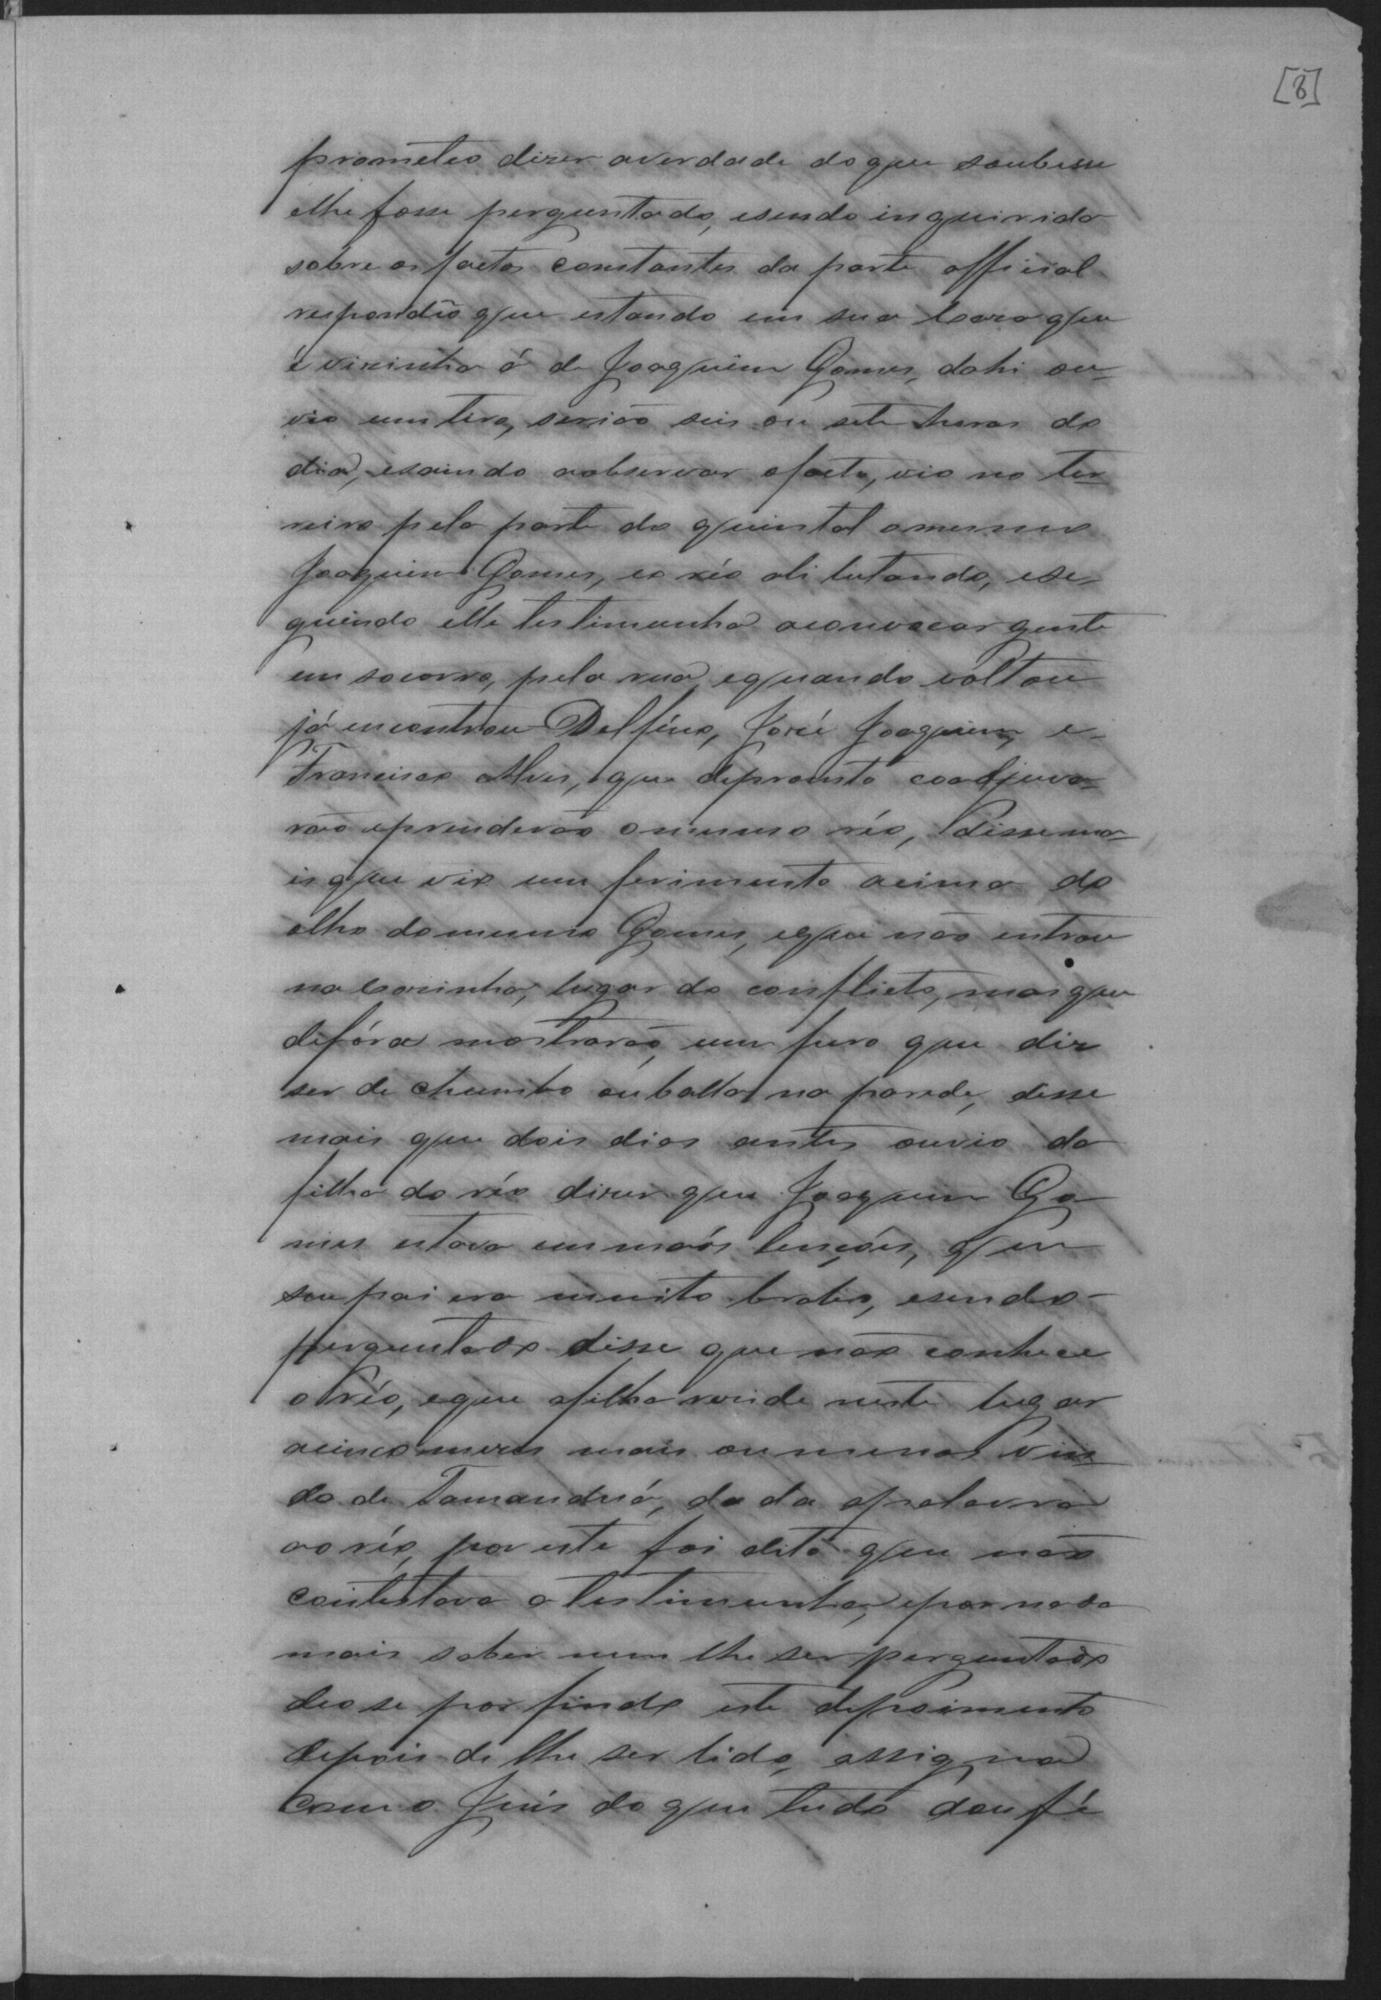 [8]
prometeo dizer averdade doque soubesse
elhe fosse perguntado, esendo inquirido
sobre os factos constantes da parte official
respondeo que estando em sua casa que
é vizinha á de Joaquim Gomes, dahi ou-
vio um tiro, serião seis ou sete horas do
dia, esaindo aobservar ofacto, vio no ter
reiro pela parte do quintal omesmo
Joaquim Gomes, eo réo ali lutando, ese-
guindo elle testimunha aconvocar gente
em socorro, pela rua, equando voltou
já encontrou Delfino, José Joaquim, e
Francisco Alves, que depronto coadjuva-
rão eprenderão omesmo réo, Disse ma-
is que vio um ferimento acima do
olho domesmo Gomes, eque não entrou
nacosinha, lugar do conflicto, mas que
defóra mostrarão um furo que diz
ser de chumbo ouballa na parede, disse
mais que dois dias antes ouvio da
filha do réo dizer que Joaquim Go-
mes estava emmaós lençóes, que
seu pai era muito brabo, esendo
perguntado disse que não conhece
o réo, eque afilha reside neste lugar
acinco mezes mais oumenos vin
da de Tamanduá, dada apalavra
aoréo, por este foi dito que não
contestava a testimunha, epornada
mais saber nem lhe ser perguntado
deose por findo este depoimento
depois de lhe ser lido, assigna
com o Juis do que tudo dou fé